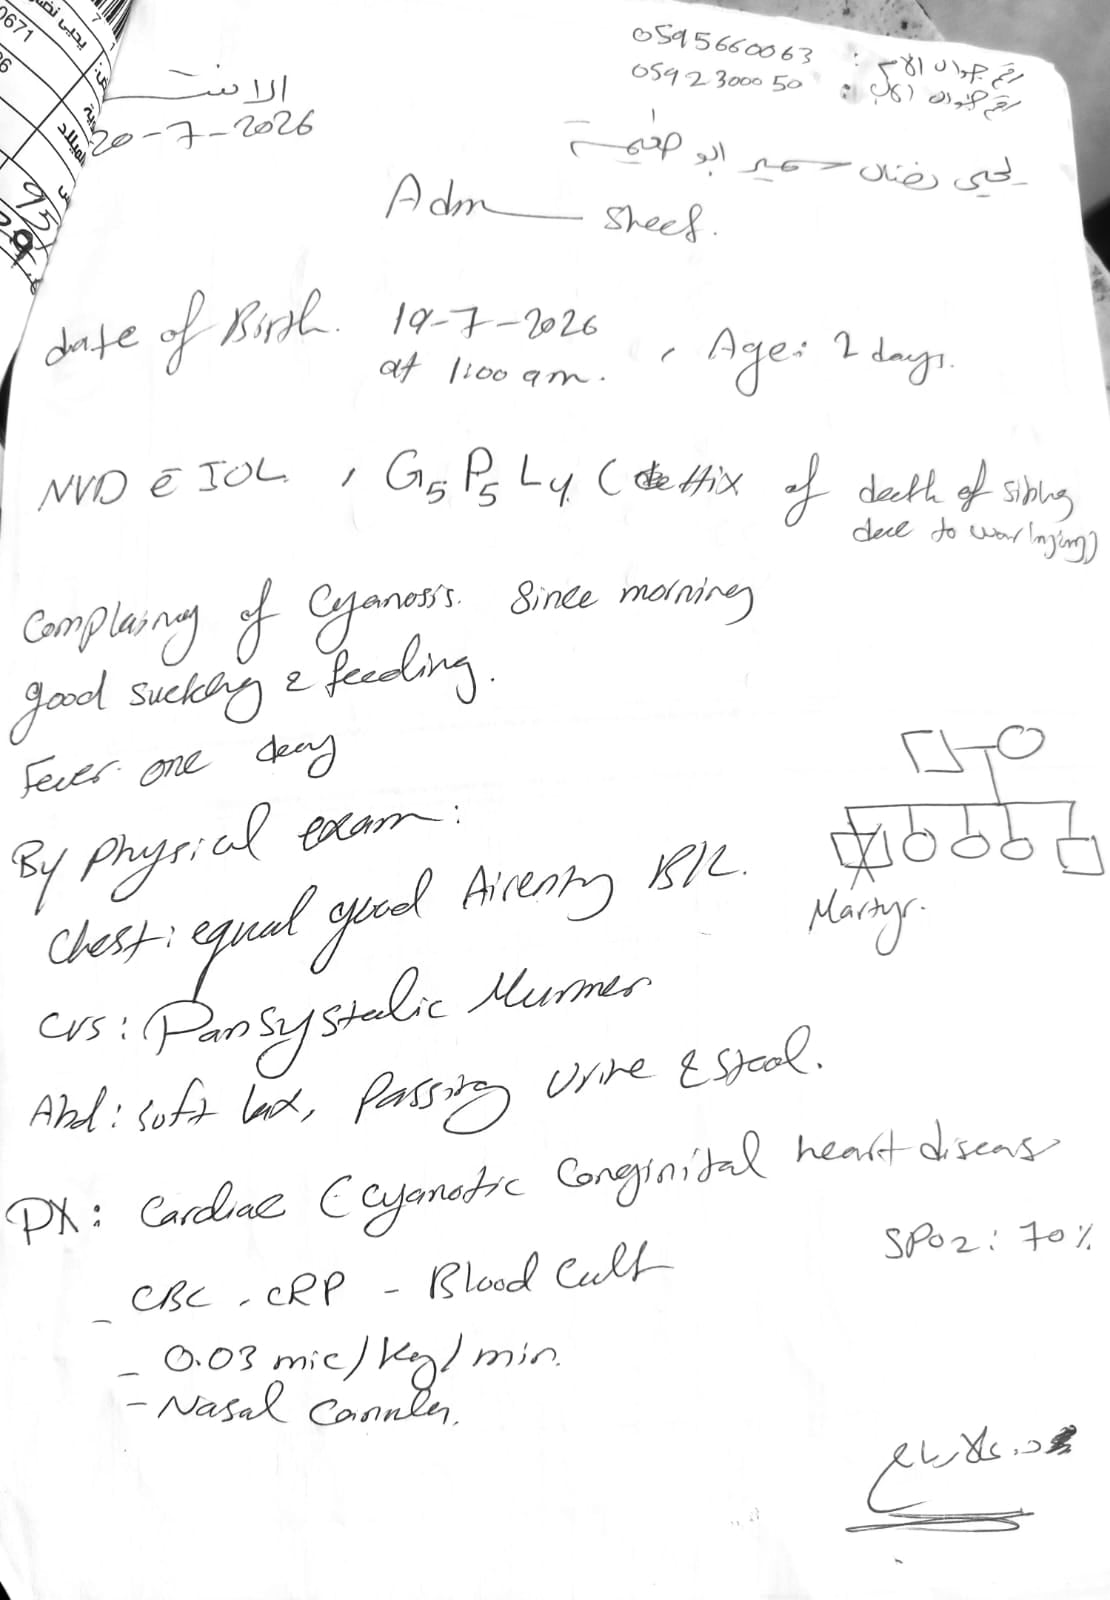 رقم جوال الأم : 0595660063
رقم جوال الأب : 059230050
الاثنين
20-7-2026
يحيى رمضان سمير ابو
Adm sheet.
date of Birth. 19-7-2026 at 1:00 am. , Age: 2 days.
NVD c̄ IOL , G5P5L4 (Hx of death of sibling due to war injury)
Complaining of Cyanosis. Since morning
good suckling & feeding.
Fever one day
By physical exam:
Chest: equal good Air entry B/L.
Martyr.
CVS: Pansystolic Murmer
Abd: soft lax, passing urine & stool.
DX: Cardiac (cyanotic conginital heart diseas
SPO2: 70%
- CBC - CRP - Blood Cult
- 0.03 mic/kg/min.
- Nasal Cannula.
د. علا